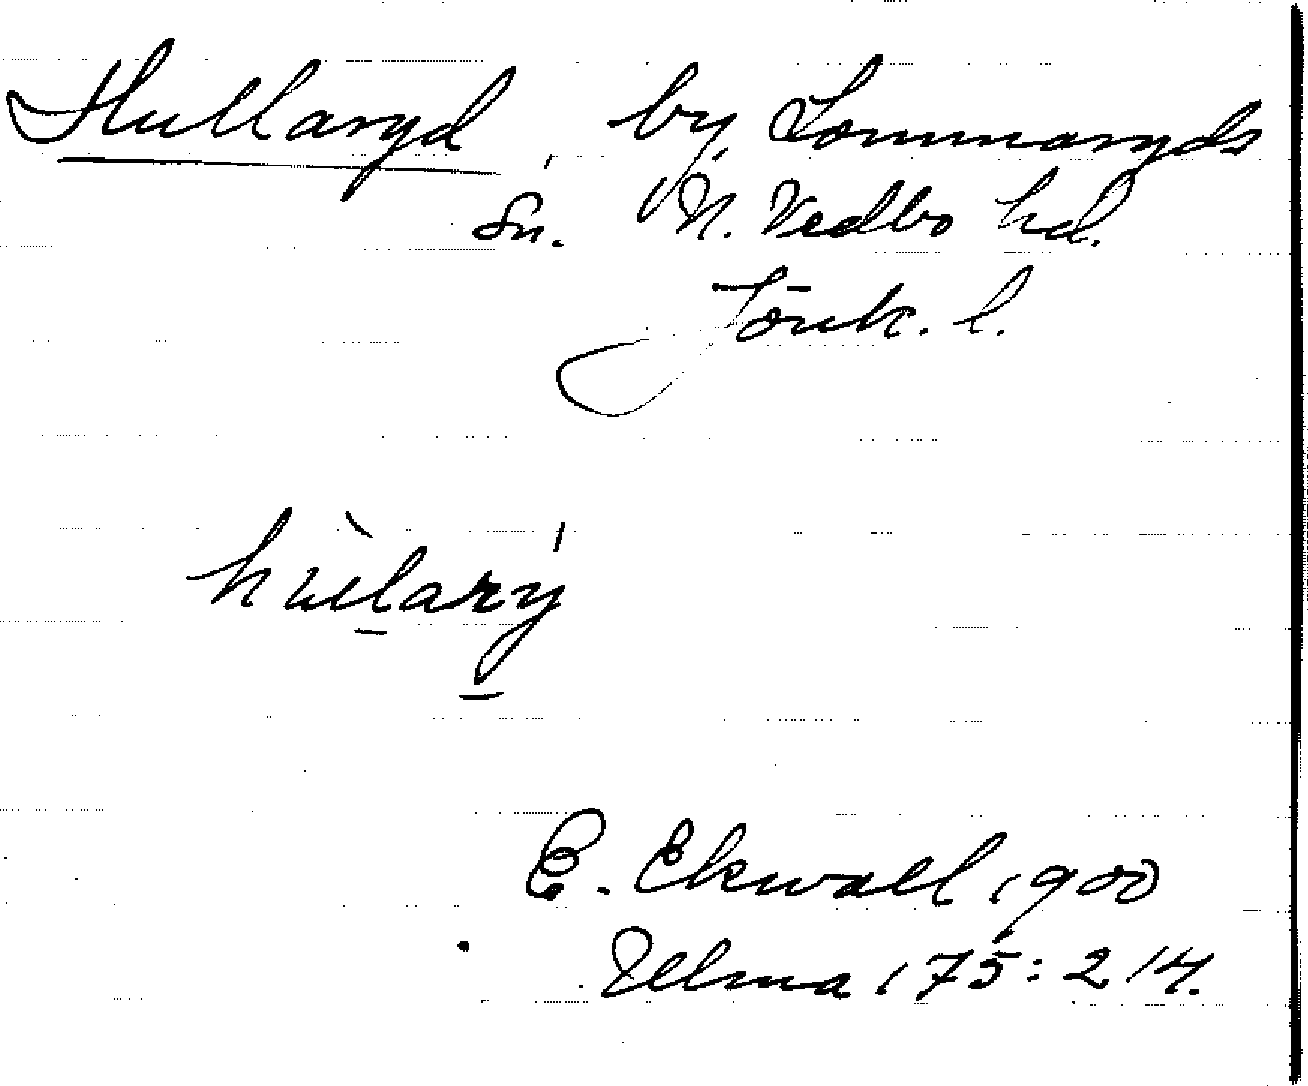 Hullaryd by, Lommaryds
sn. N. Vedbo hd.
Jönk. l.
hùl̠arý̠
E. Ekwall 1900
Ulma 175:214.